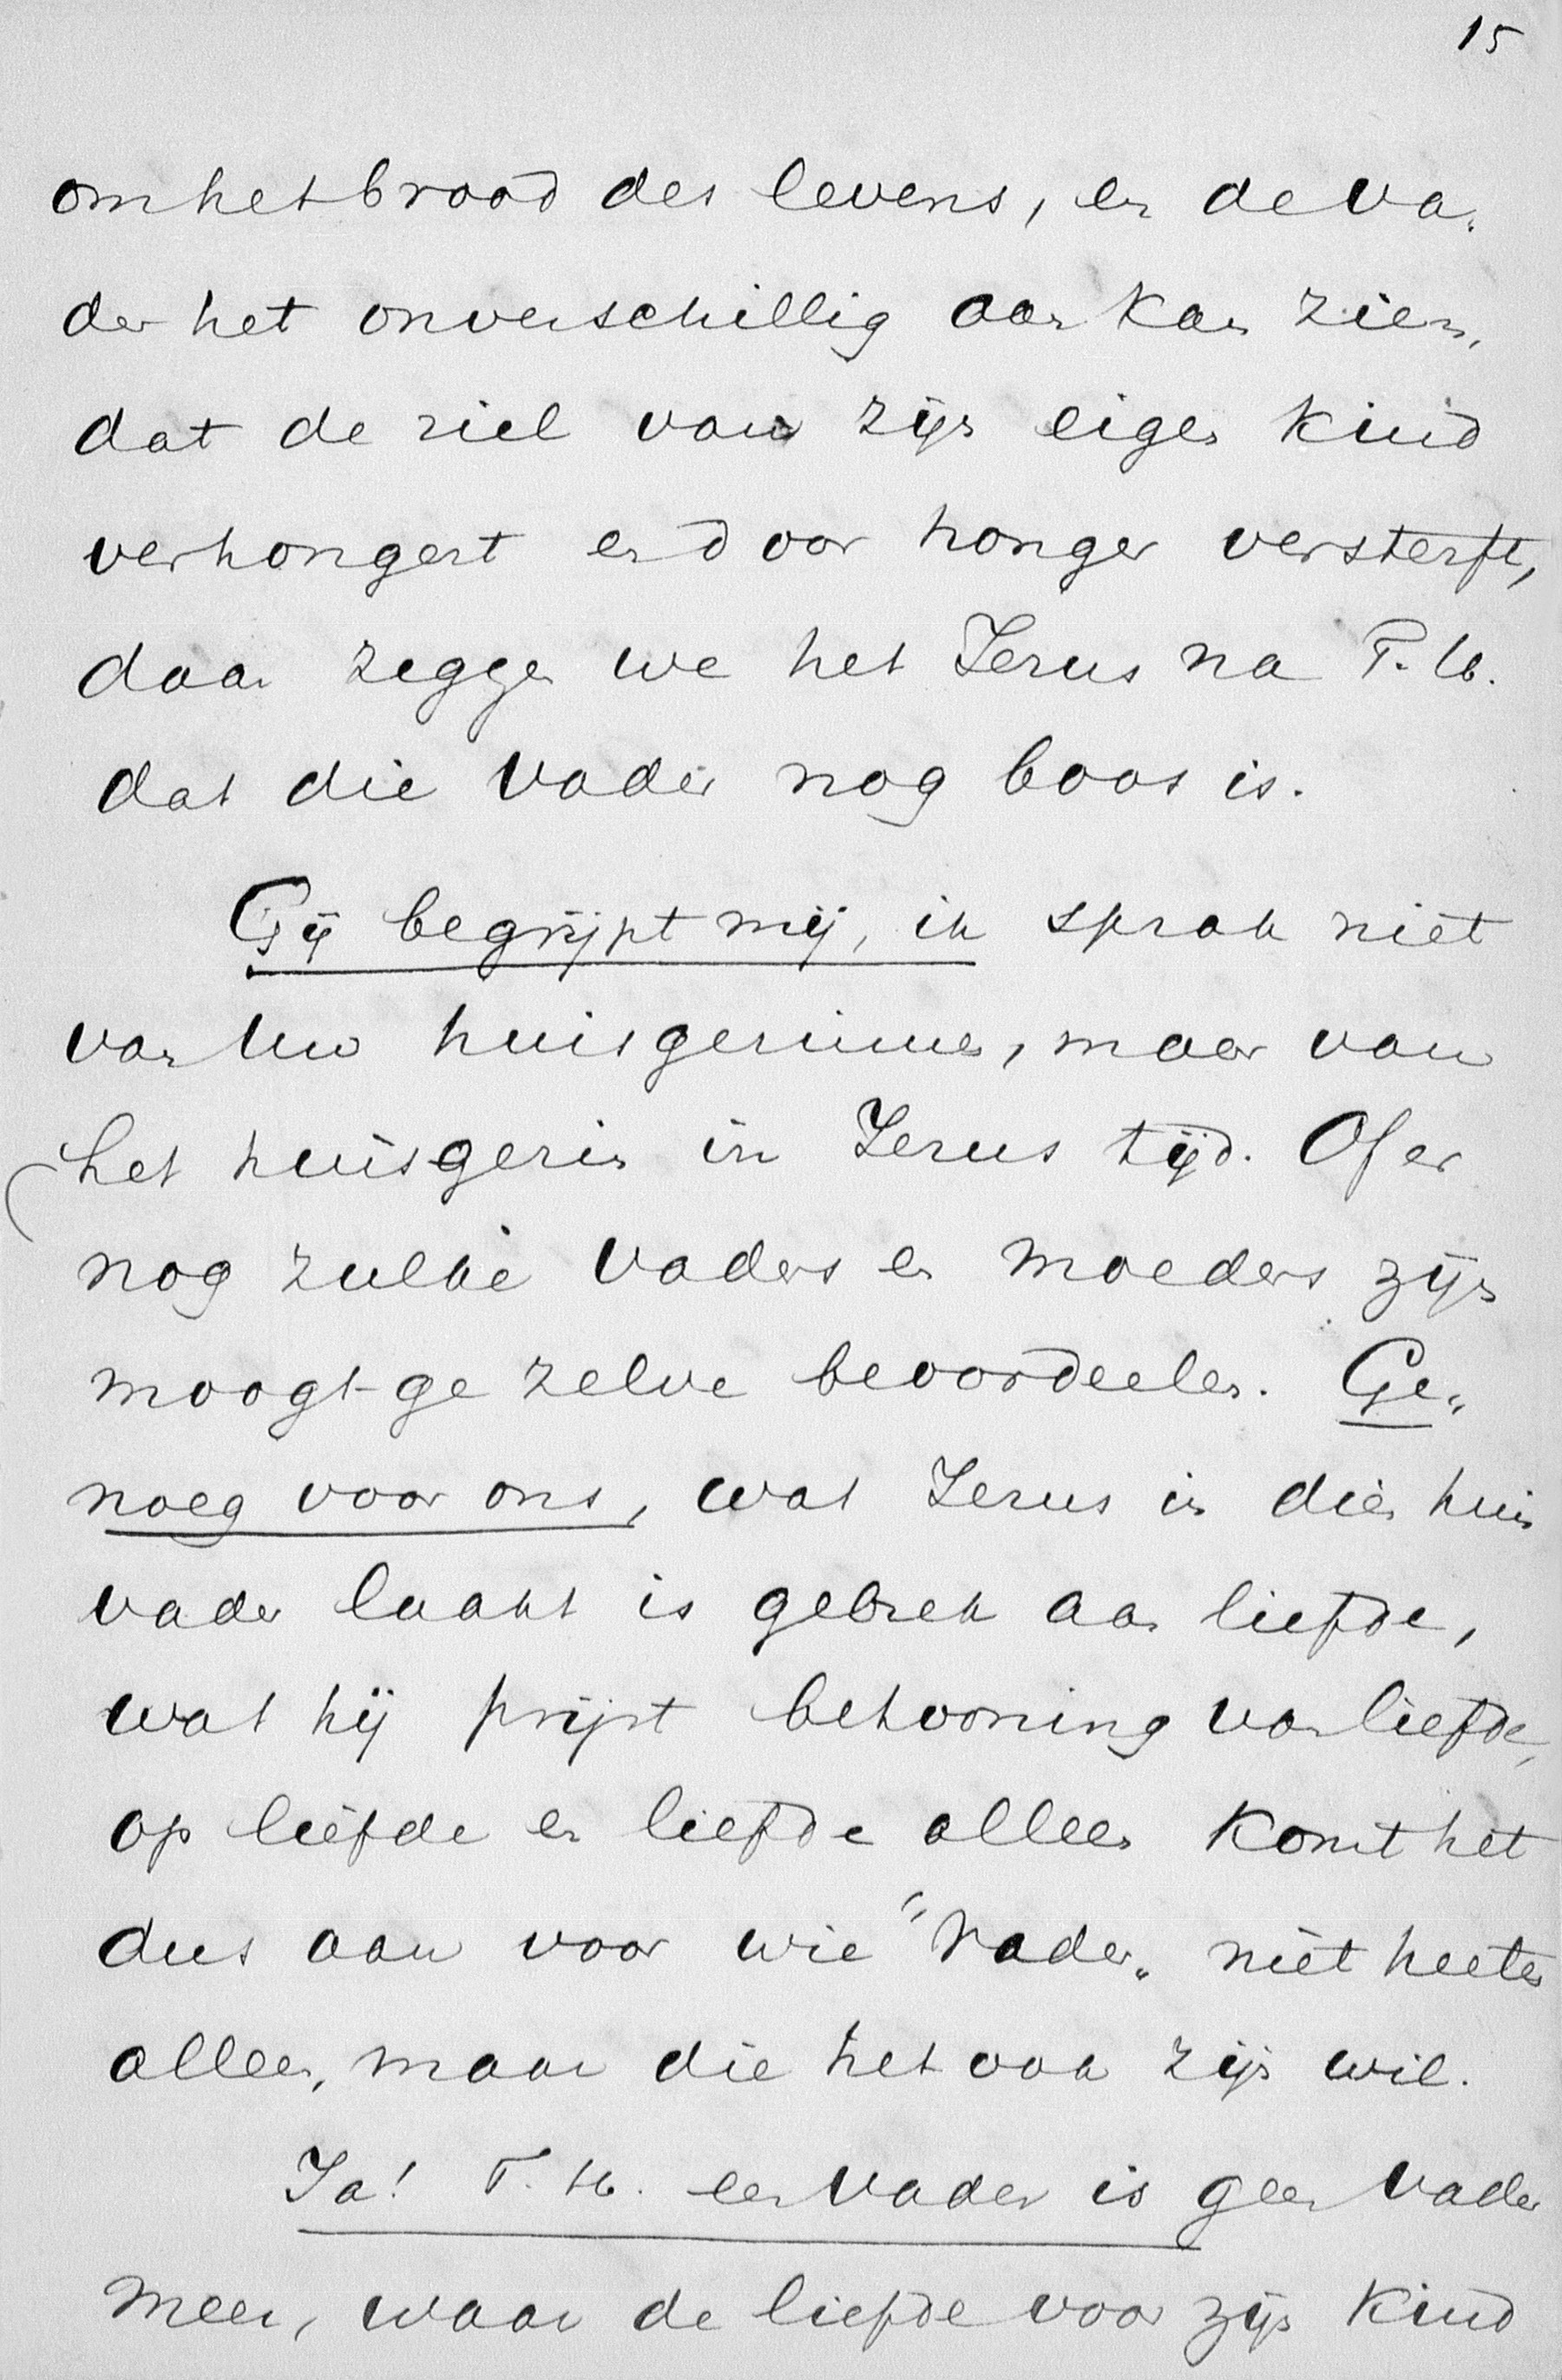 15
om het brood des levens, en de va„
der het onverschillig aan kan zien,
dat de ziel van zijn eigen kind
verhongert en door honger versterft,
daar zeggen we het Jezus na T. H.
dat die vader nog boos is.
Gij begrijpt mij, ik sprak niet
van Uw huisgezinnen, maar van
het huisgezin in Jezus tijd. Of er
nog zulke vaders en moeders zijn
moogt ge zelve beoordeelen. Ge„
noeg voor ons, wat Jezus in dien huis
vader laakt is gebrek aan liefde,
wat hij prijst betooning van liefde,
op liefde en liefde alleen komt het
dus aan voor wie "Vader„ niet heeten
alleen, maar die het ook zijn wil.
Ja! T. H. een vader is geen vader
meer, waar de liefde voor zijn kind